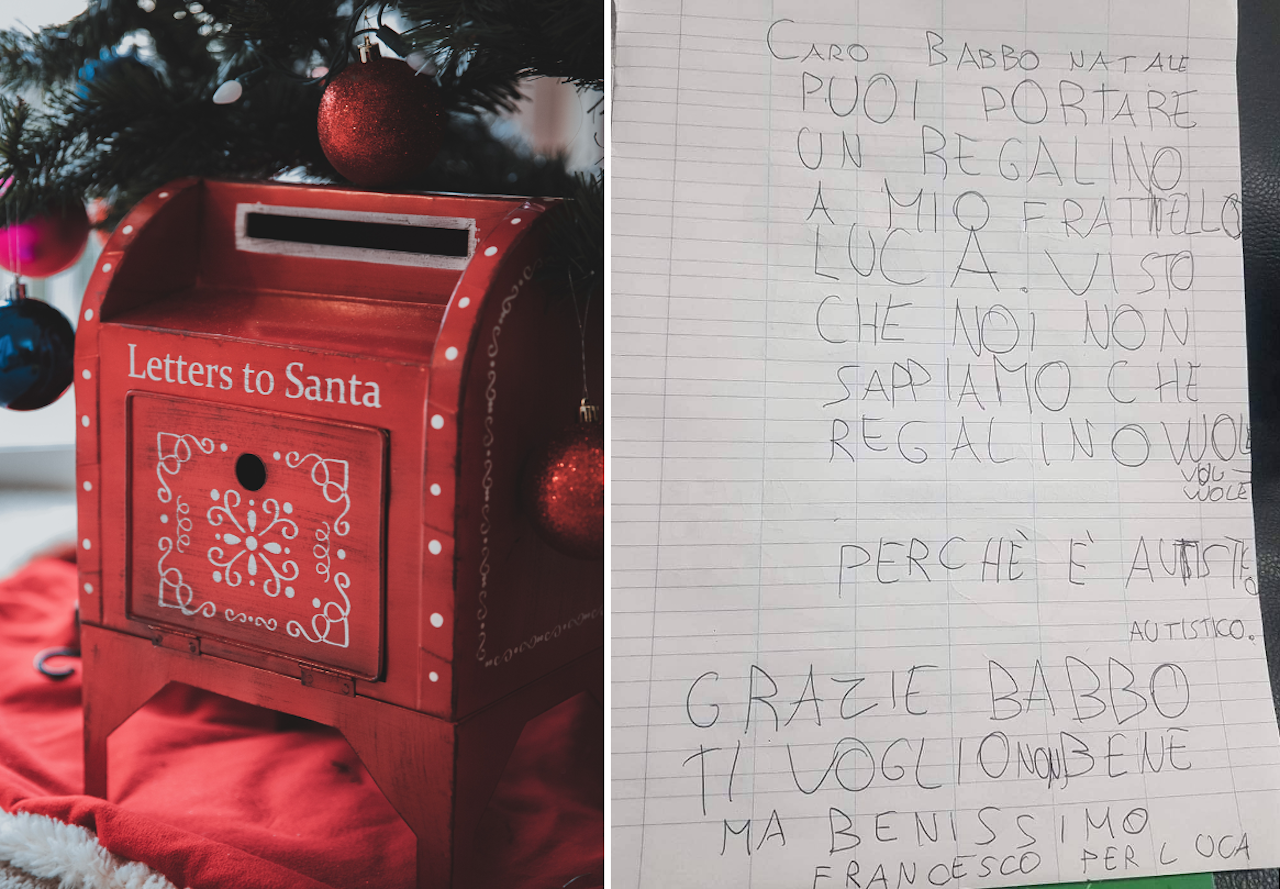 Letters to Santa
CARO BABBO NATALE
PUOI PORTARE
UN REGALINO
A MIO FRATELLO
LUCA. VISTO
CHE NOI NON
SAPPIAMO CHE
REGALINO
VUOLE
PERCHÈ È
AUTISTICO.
GRAZIE BABBO
TI VOGLIO NON BENE
MA BENISSIMO
FRANCESCO PER LUCA